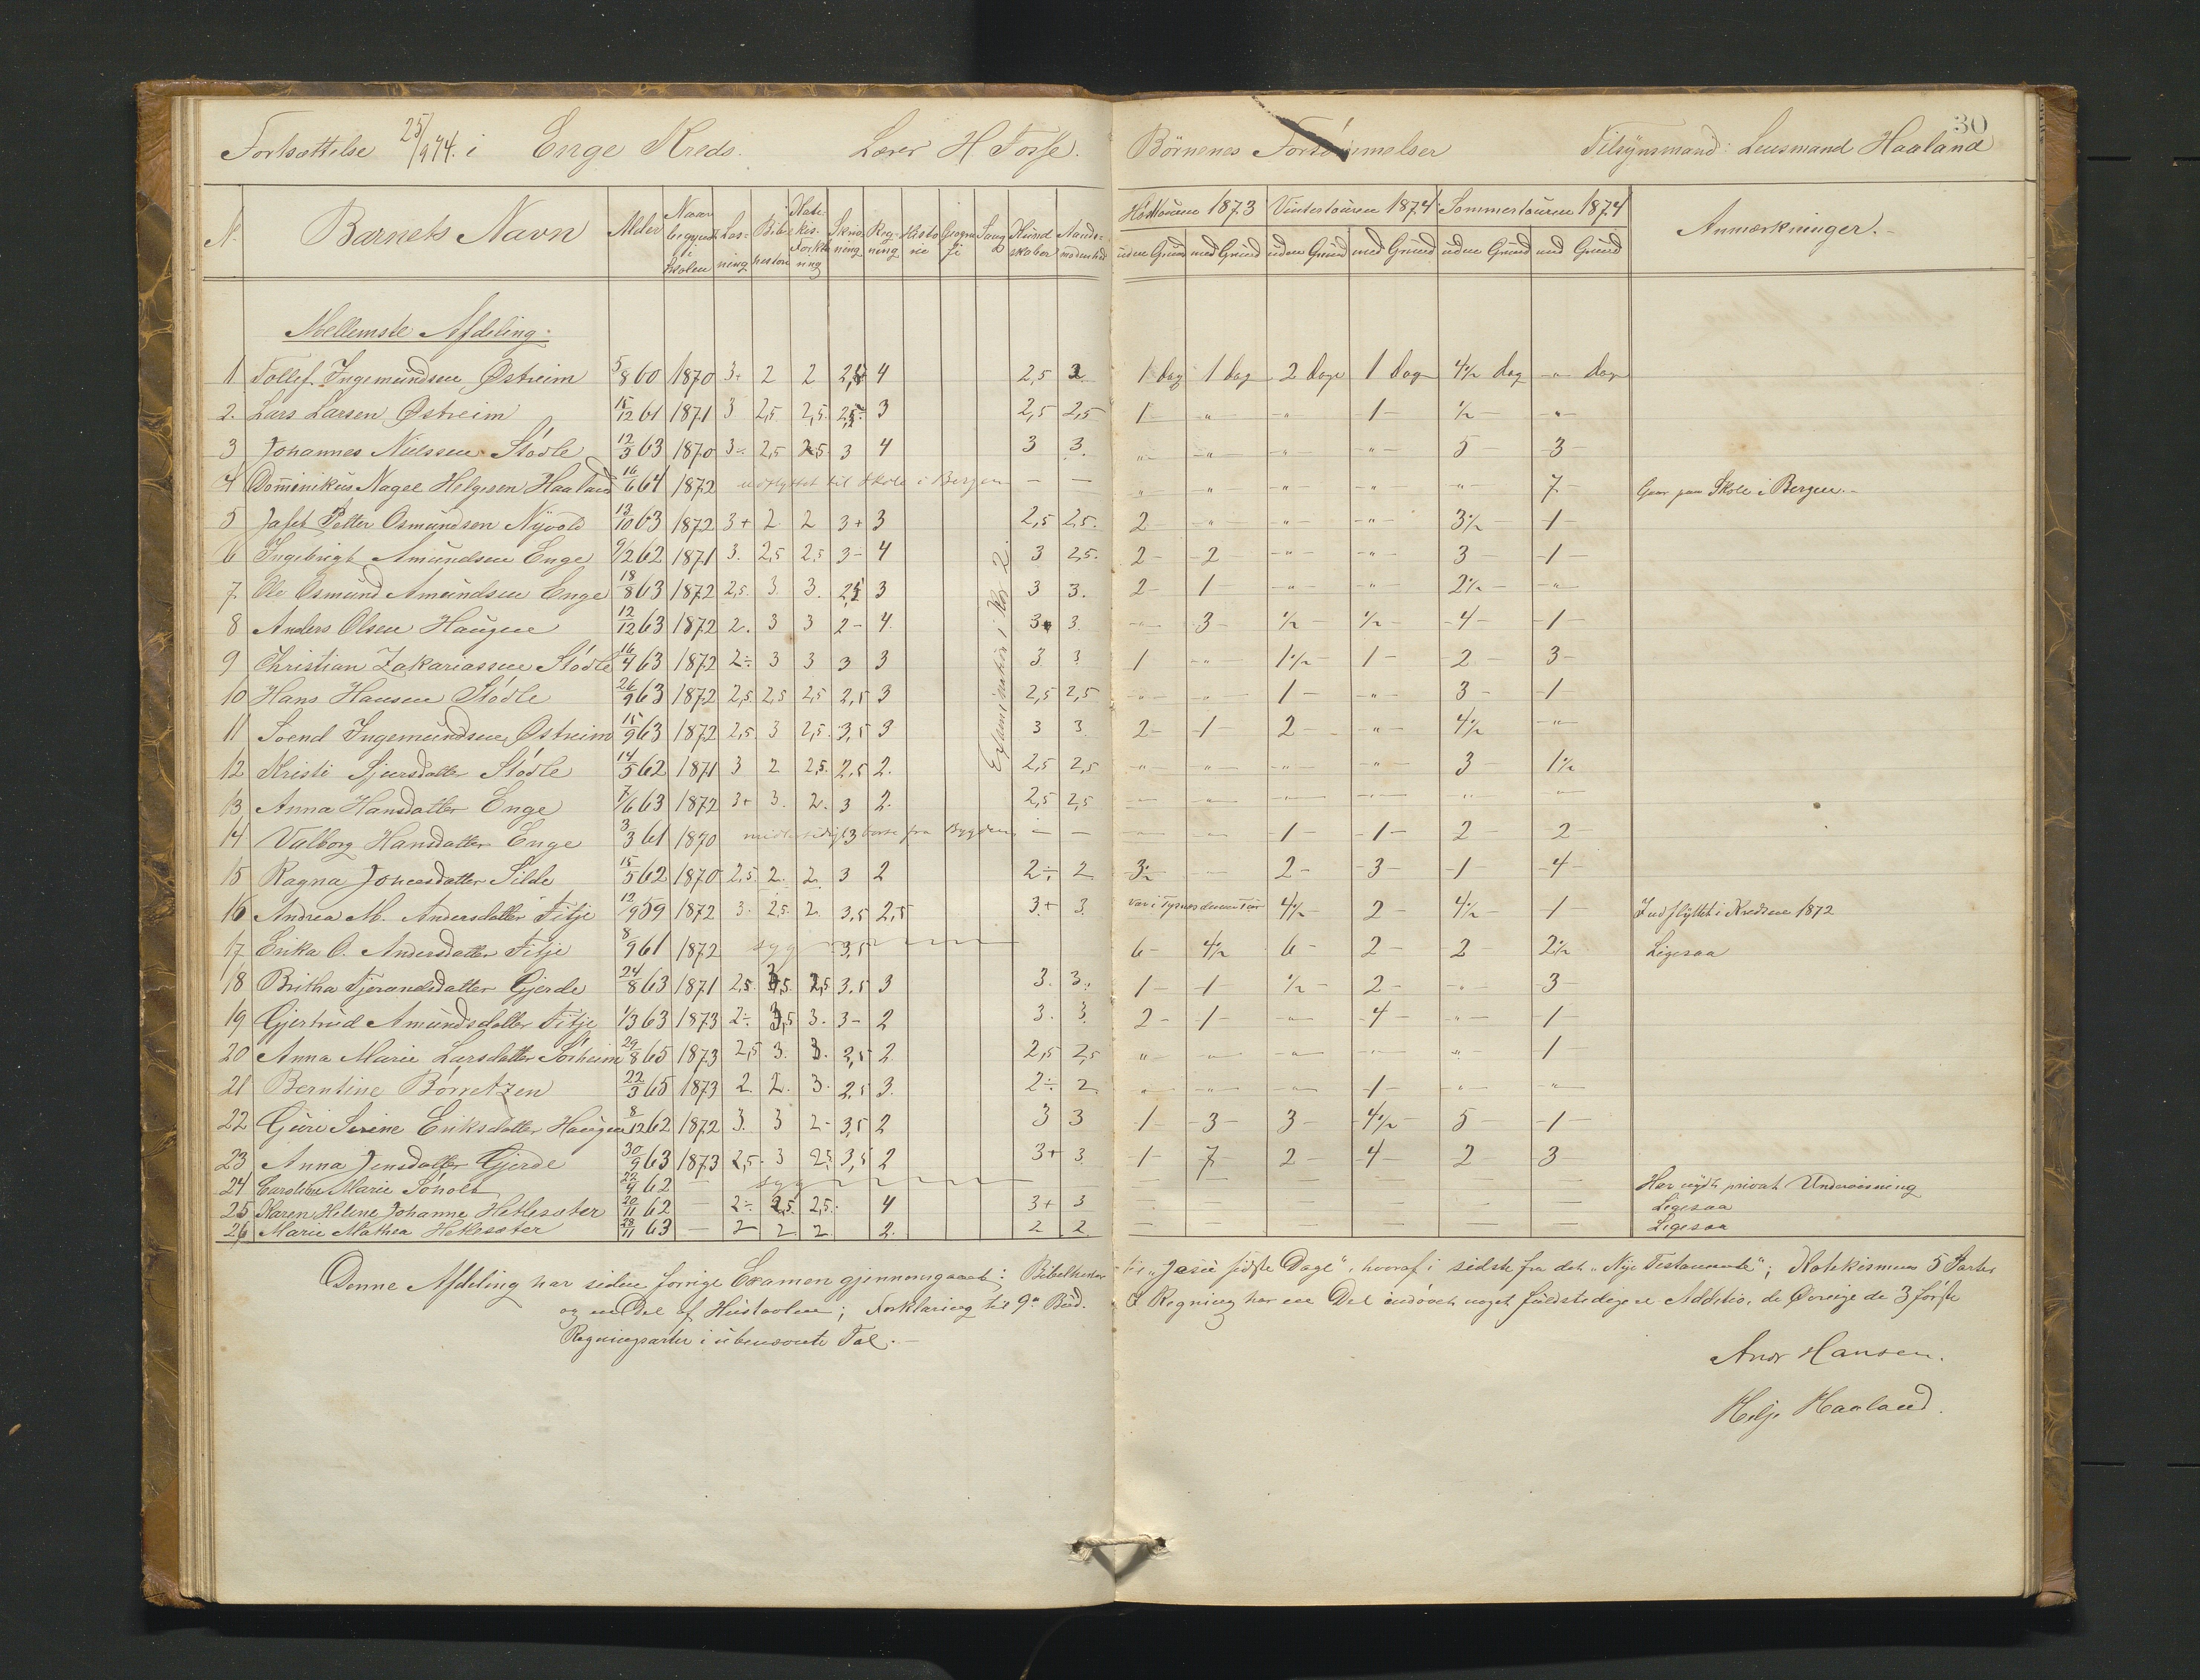 Fortsættelse 25/9 74. i Enge Kreds. Lærer H Fosse.
N. Barnets Navn Alder Naar begyndt i Skolen Læsning Bibelhistorie Katekis. Forklaring Skrivning Regning Historie Geografi Sang Kundskaber Aandsmodenhed
Mellemste Afdeling.
1 Tollef Ingemundsen Østreim 5/8 60 1870 3+ 2 2 4 2,5 2
2. Lars Larsen Østreim 15/12 61 1871 3 2,5 2,5 3 2,5 2,5
3 Johannes Nielssen Stødle 12/3 63 1870 3- 2,5 2,5 3 4 3 3.
4 Dominikus Nagel Helgesen Haaland 16/6 64 1872 udflyttet til Skole i Bergen — —
5 Jafet Petter Osmundsen Nyvold 13/10 63 1872 3+ 2 2 3+ 3 2,5 2,5.
6 Ingebrigt Amundsen Enge 9/12 62 1871 3. 2,5 2,5 3- 4 3 2,5.
7. Ole Osmund Amundsen Enge 18/8 63 1872 2,5. 3. 3. 2,5 3 3 3.
8 Anders Olsen Haugen 12/12 63 1872 2. 3 3 2- 4. 3 3.
9 Christian Zakariassen Stødle 16/4 63 1872 2÷ 3 3 3 3 3 3
10 Hans Hansen Stødle 26/9 63 1872 2,5. 2,5 2,5 2,5 3 2,5 2,5
11 Svend Ingemundsen Østreim 15/9 63 1872 2,5. 3 2,5. 3,5 3 3 3.
12 Kristi Sjursdatter Stødle 14/5 62 1871 3 2 2,5. 2,5 2. 2,5 2,5
13 Anna Hansdatter Enge 7/6 63 1872 3+ 3. 2. 3 2. 2,5 2,5
14 Valborg Hansdatter Enge 3/3 61 1870 midlertidigt 3 borte fra Bygden — —
15 Ragna Jonesdatter Silde 15/5 62 1870 2,5. 2. 2. 3 2 2÷ 2
16 Andrea M. Andersdatter Fitje 12/9 59 1872 3. 2,5. 2. 3,5 2,5 3+ 3.
17 Erika O. Andersdatter Fitje 8/9 61 1872 syg 3,5
18 Britha Tjerandsdatter Gjerde 24/8 63 1871 2,5. 2,5 3,5 3 3. 3.
19 Gjertrud Amundsdatter Fitje 1/3 63 1873 2÷ 3. 3- 2 3. 3.
20 Anna Marie Larsdatter Sørheim 29/8 65 1873 2,5 3. 3. 3,5 2 2,5 2,5
21 Berntine Børretzen 22/3 65 1873 2 2. 3. 2,5 3. 2÷ 2
22 Guri Serine Eriksdatter Haugen 8/12 62 1872 3. 3 2- 3,5 2 3 3
23 Anna Jensdatter Gjerde 30/9 63 1873 2,5. 3 2,5 3,5 2 3+ 3.
24 Caroline Marie 22/4 62 — syg
25 Karen Heline Johanne Hetlesæter 20/11 62 2÷ 2,5 2,5. 4 3+ 3
26 Marie Mathea Hetlesæter 28/11 63 — 2 2 2. 2. 2 2
Examination i Kl. 2.
Denne Afdeling har siden forrige Examen gjennemgaaet: Bibelhisto-
og en Del af Hustavlen; Forklaring til 9de Bud.
Regningsarter i ubenævnte Tal.—
30
Børnenes Forsømmelser Tilsynsmand: Lensmand Haaland
Høsttouren 1873 Vintertouren 1874 Sommertouren 1874 Anmærkninger.
uden Grund med Grund uden Grund med Grund uden Grund med Grund
1 dag 1 dag 2 dage 1 dag 4½ dag " dag
1 — " — " — 1 — ½ — " —
" — " — " — " — 5 — 3 —
" — " — " — " — " — 7 — Gaar paa Skole i Bergen.—
2 — " — " — " — 3½ — 1 —
2 — 2 — " — " — 3 — 1 —
2 — 1 — " — " — 2½ — " —
" — 3 — ½ — ½ — 4 — 1 —
1 — " — 1½ — 1 — 2 — 3 —
" — " — 1 — " — 3 — 1 —
2 — 1 — 2 — " — 4½ — " —
" — " — " — " — 3 — 1½
" — " — " — " — " — " —
" — " — 1 — 1 — 2 — 2 —
3½ — " — 2 — 3 — 1 — 4 —
Var i Tysnes denne Tour 4½ — 2 — 4½ — 1 — Indflyttet i Kredsen 1872
6 — 4½ 6 — 2 — 2 — 2½ Ligesaa
1 — 1 — ½ — 2 — " — 3 —
2 — 1 — " — 4 — " — 1 —
" — " — " — " — " — 1 —
" — " — " — 1 — " — " —
1 — 3 — 3 — 4½ — 5 — 1 —
1 — 7 — 2 — 4 — 2 — 3 —
— — — — — — Har nydt privat Undervisning
— — — — — — Ligesaa
— — — — — — Ligesaa
rie „Jesu sidste Dage“, hvoraf i sidste fra det „Nye Testamente“; Katekismens 5 Parter
I Regning har en Del indøvet noget fuldstædigere Additio, de Øvrige de 3 første
Andr Hansen.
Helje Haaland.